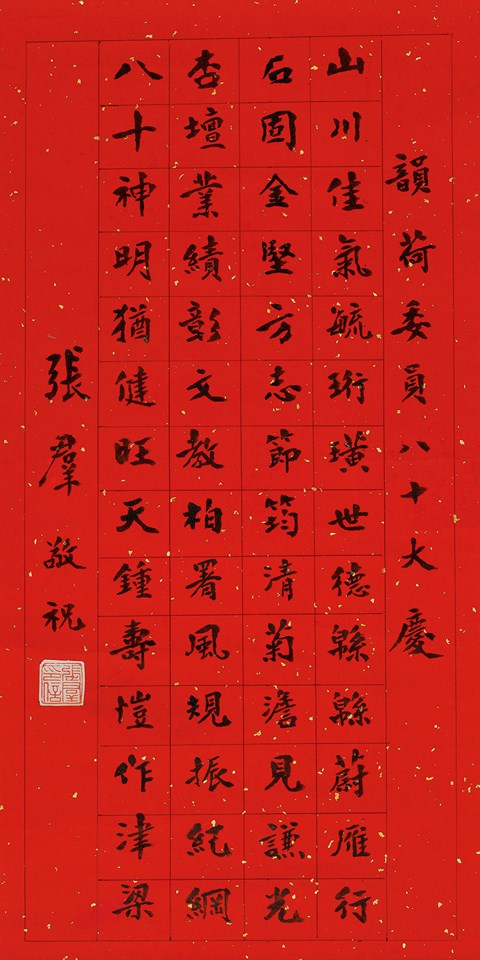 韻荷委員八十大慶
山川佳氣毓珩璜世德緜緜蔚雁行
石固金堅方志節筠清菊澹見謙光
杏壇業績彰文教柏署風規振紀綱
八十神明猶健旺天錘壽愷作津梁
張羣敬祝